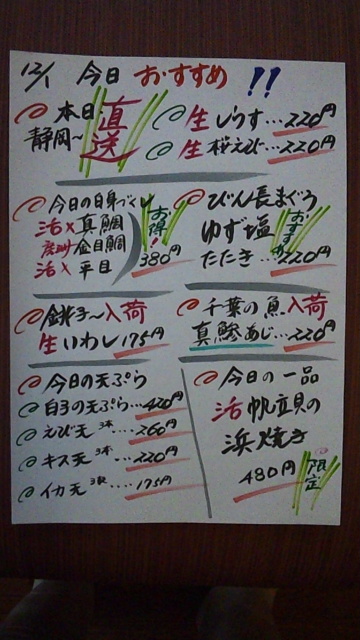 12/1 今日 おすすめ !!
本日 直送
静岡~
生しらす…220円
生桜えび…220円
今日の白身づくし
活〆真鯛
金目鯛
活〆平目
お得!
380円
びん長まぐろ
ゆず塩
たたき…220円
おすすめ
銚子~入荷
生いわし175円
千葉の魚入荷
真鯵あじ…220円
今日の天ぷら
白子の天ぷら…420円
えび天 3本…260円
キス天 3本…220円
イカ天 3ヶ…175円
今日の一品
活帆立貝の
浜焼き
480円 限定